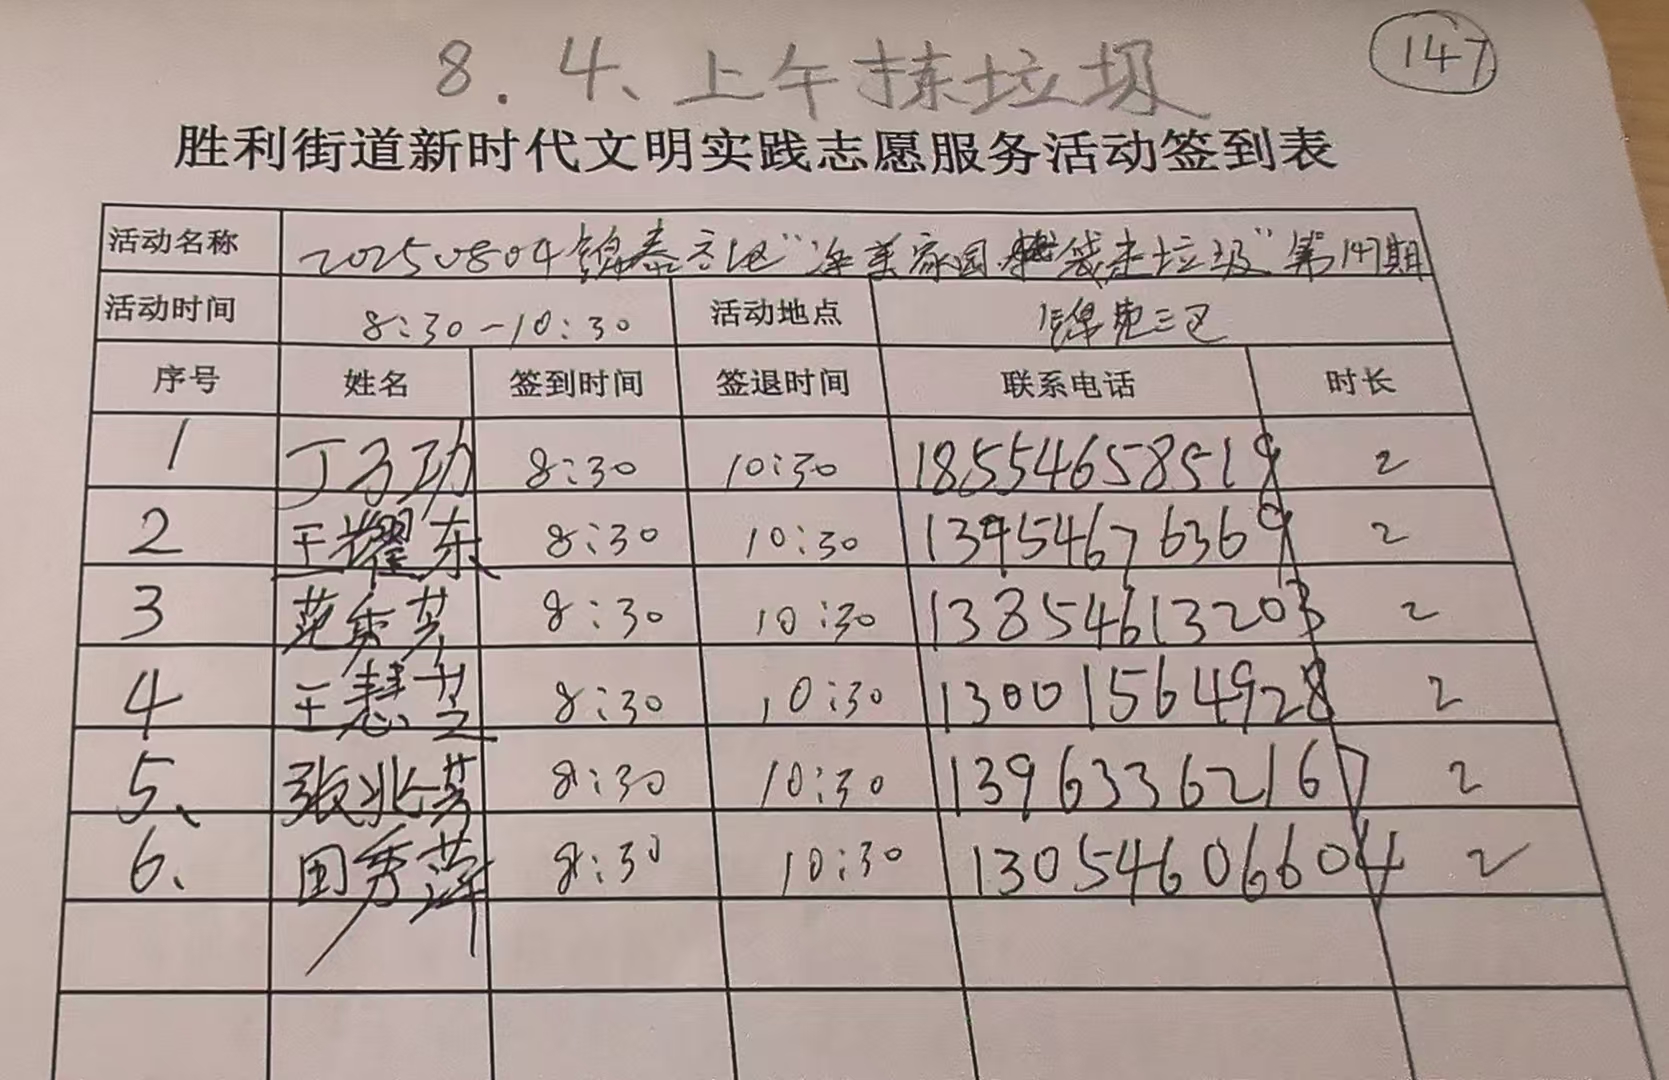 147
8.4、上午拣垃圾
胜利街道新时代文明实践志愿服务活动签到表
活动名称 20250804锦泰社区“净美家园 袋走垃圾”第147期
活动时间 8:30-10:30 活动地点 锦苑三区
序号 姓名 签到时间 签退时间 联系电话 时长
1 丁子功 8:30 10:30 18554658519 2
2 王耀东 8:30 10:30 13954676369 2
3 范秀英 8:30 10:30 13854613203 2
4 王慧芝 8:30 10:30 13001564928 2
5、 张兆芬 8:30 10:30 13963362167 2
6、 田秀萍 8:30 10:30 13054606604 2